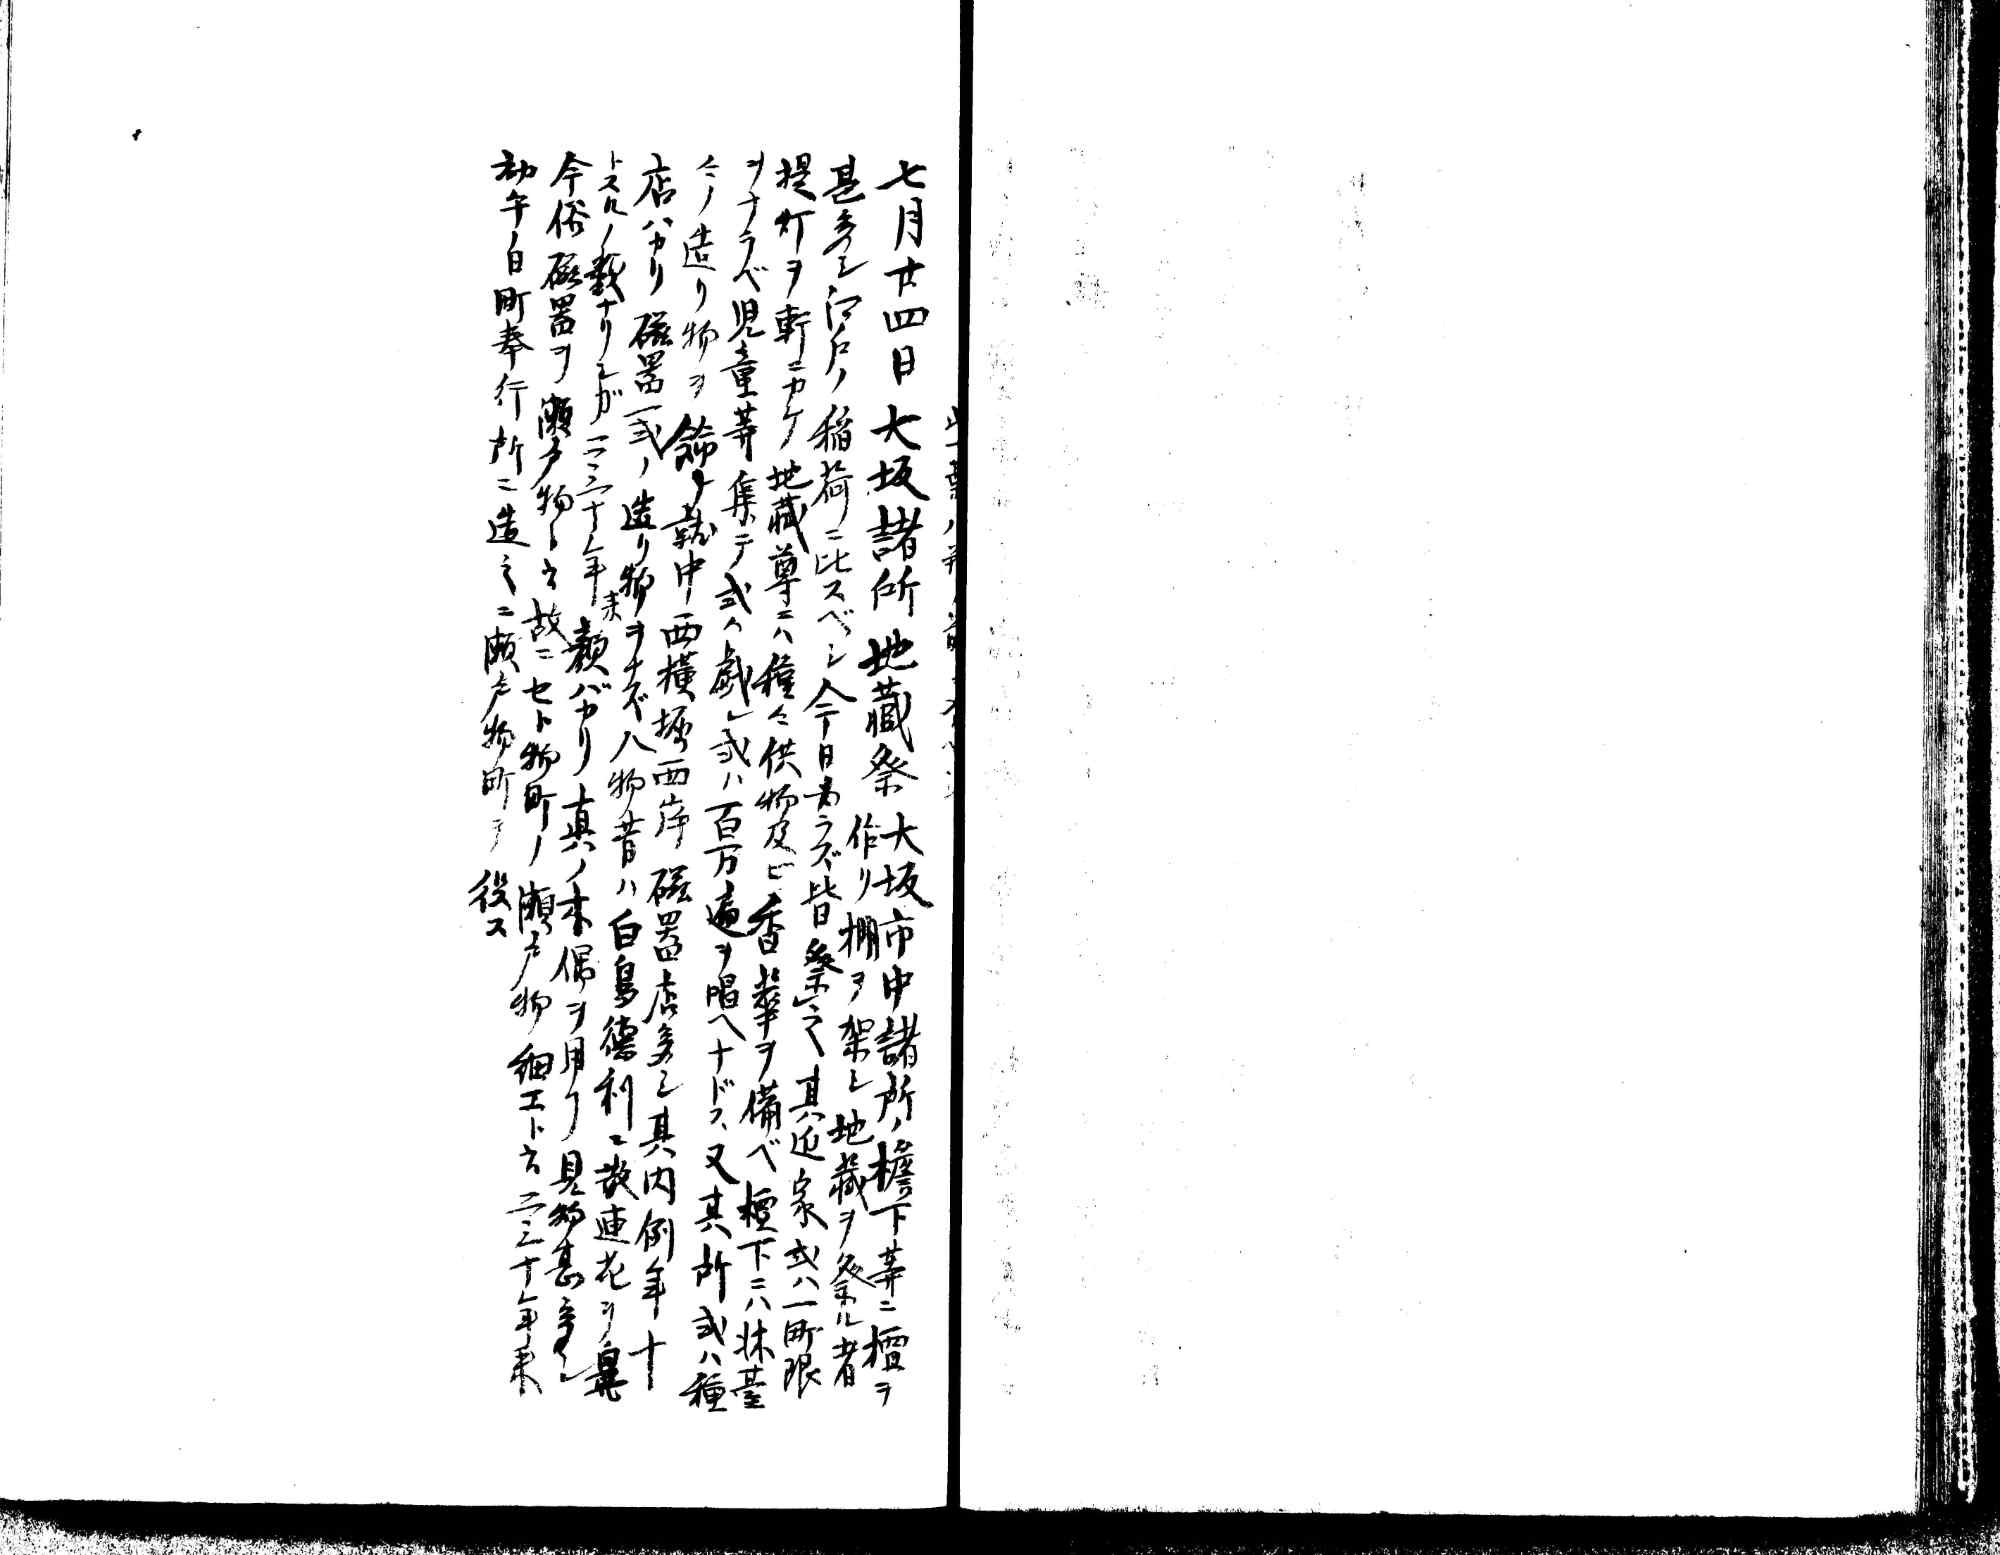 七月廿四日大坂諸所地藏祭大坂市中諸所ノ檐下等ニ檀ヲ
作リ棚ヲ架シ地藏ヲ祭ル者
甚多シ江戸ノ稲荷ニ比スベシ今日番ラズ皆祭之其近家或ハ一町限
提灯ヲ軒ニカケ地藏尊ニハ種々供物及ビ香華ヲ備ベ檀下ニハ牀臺
ヲナラベ児童等集テ或ハ戯レ或ハ百万遍ヲ唱ヘナドス又其所或ハ種
々ノ造リ物ヲ飾ル就中西横堀西岸磁器店多シ其内例年十
店バカリ磁器一式ノ造リ物ヲナス人物昔ハ白鳥德利ニ散連花ヲ鼻
トスルノ製ナリシガ二三十年来顔バカリ真ノ木偶ヲ用フ見物甚多シ
今俗磁器ヲ瀬戸物ト云故ニセト物町ノ瀬戸物細工ト云二三十年来
初午ノ日町奉行所ニ造之ニ瀬戸物町ヲ役ス